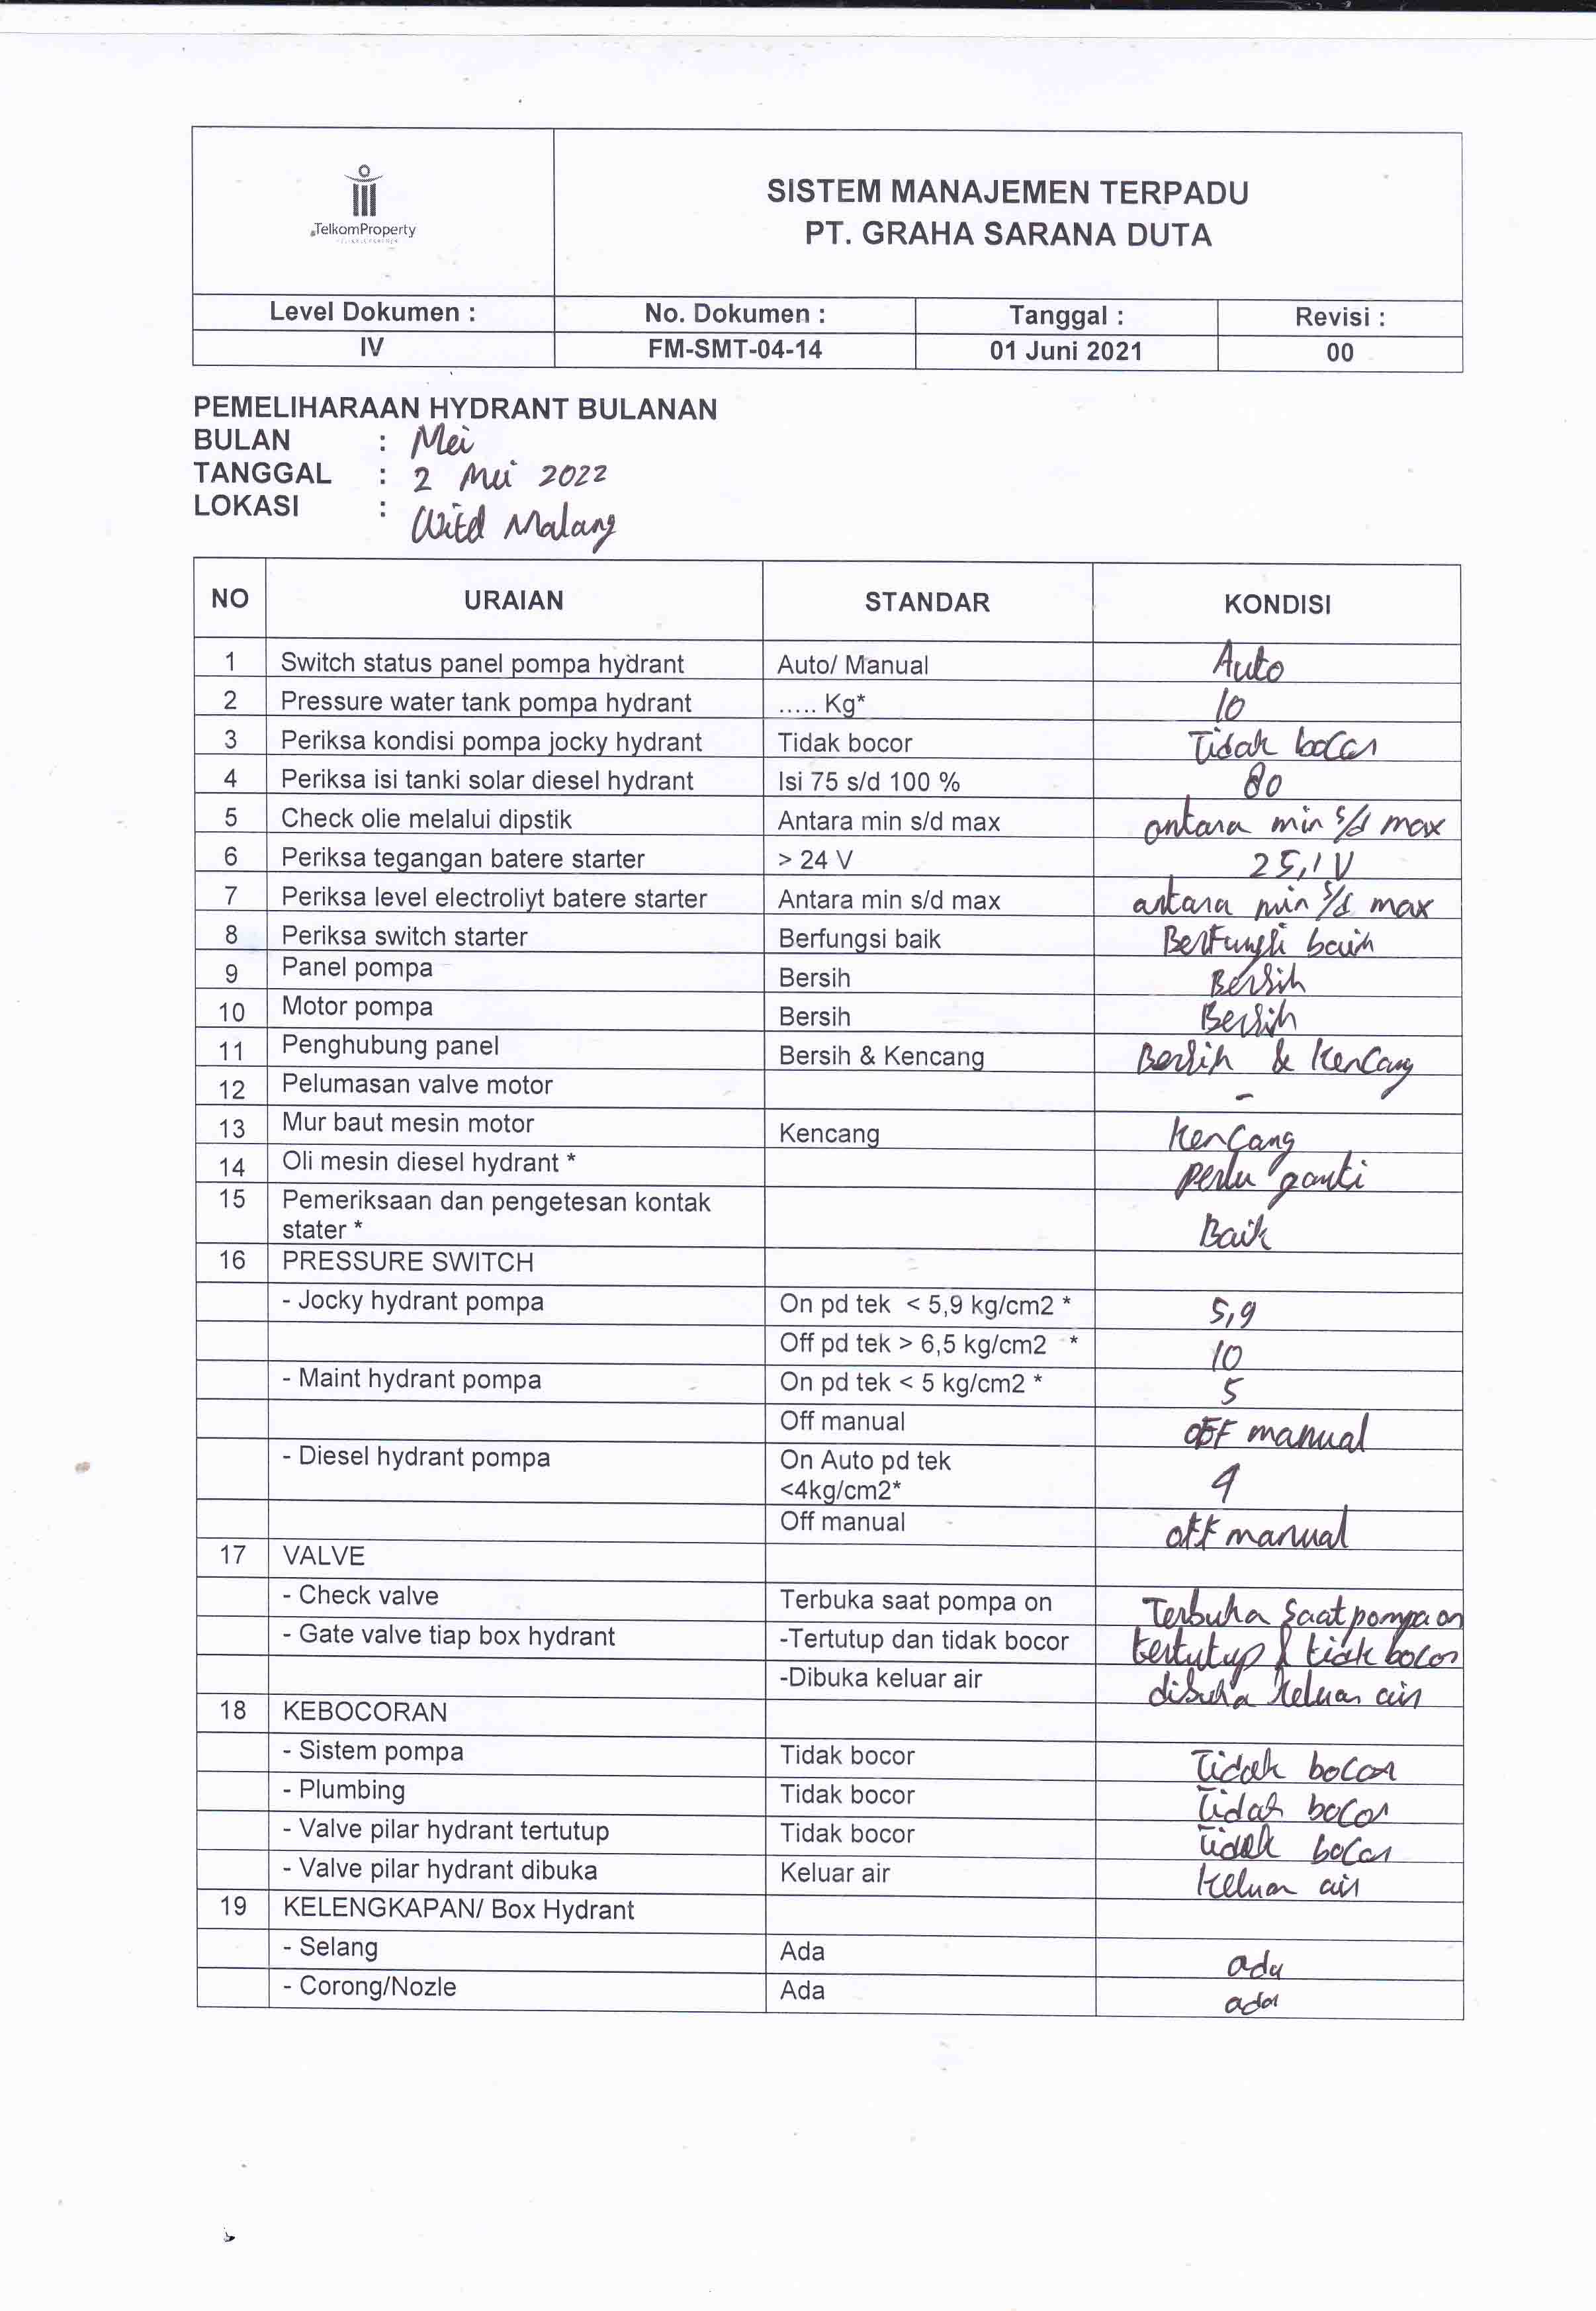 TelkomProperty
SISTEM MANAJEMEN TERPADU
PT. GRAHA SARANA DUTA
Level Dokumen : No. Dokumen : Tanggal : Revisi :
IV FM-SMT-04-14 01 Juni 2021 00
PEMELIHARAAN HYDRANT BULANAN
BULAN : Mei
TANGGAL : 2 Mei 2022
LOKASI : Witel Malang
NO URAIAN STANDAR KONDISI
1 Switch status panel pompa hydrant Auto/ Manual Auto
2 Pressure water tank pompa hydrant ..... Kg* 10
3 Periksa kondisi pompa jocky hydrant Tidak bocor Tidak bocor
4 Periksa isi tanki solar diesel hydrant Isi 75 s/d 100 % 80
5 Check olie melalui dipstik Antara min s/d max antara min s/d max
6 Periksa tegangan batere starter > 24 V 25,1 V
7 Periksa level electroliyt batere starter Antara min s/d max antara min s/d max
8 Periksa switch starter Berfungsi baik Berfungsi baik
9 Panel pompa Bersih Bersih
10 Motor pompa Bersih Bersih
11 Penghubung panel Bersih & Kencang Bersih & Kencang
12 Pelumasan valve motor -
13 Mur baut mesin motor Kencang Kencang
14 Oli mesin diesel hydrant * perlu ganti
15 Pemeriksaan dan pengetesan kontak
stater * Baik
16 PRESSURE SWITCH
- Jocky hydrant pompa On pd tek < 5,9 kg/cm2 * 5,9
Off pd tek > 6,5 kg/cm2 * 10
- Maint hydrant pompa On pd tek < 5 kg/cm2 * 5
Off manual off manual
- Diesel hydrant pompa On Auto pd tek
<4kg/cm2* 4
Off manual off manual
17 VALVE
- Check valve Terbuka saat pompa on Terbuka saat pompa on
- Gate valve tiap box hydrant -Tertutup dan tidak bocor tertutup & tidak bocor
-Dibuka keluar air dibuka keluar air
18 KEBOCORAN
- Sistem pompa Tidak bocor Tidak bocor
- Plumbing Tidak bocor Tidak bocor
- Valve pilar hydrant tertutup Tidak bocor Tidak bocor
- Valve pilar hydrant dibuka Keluar air Keluar air
19 KELENGKAPAN/ Box Hydrant
- Selang Ada ada
- Corong/Nozle Ada ada